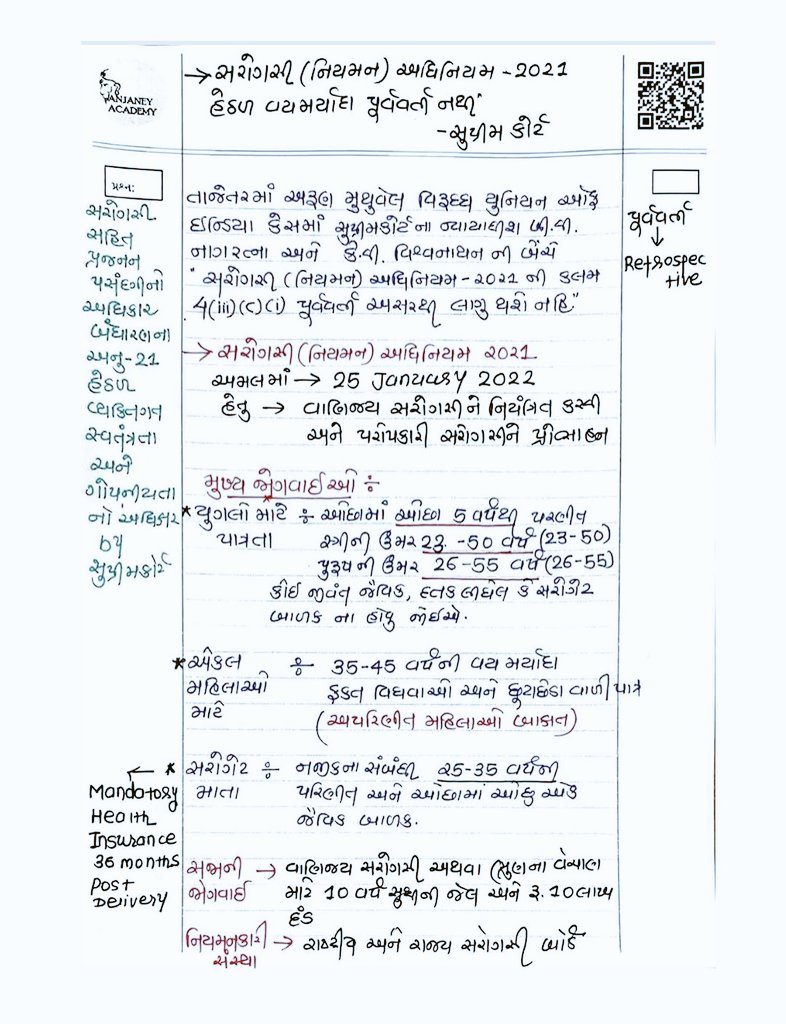 ANJANEY
ACADEMY
→ સરોગસી (નિયમન) અધિનિયમ - 2021
હેઠળ વયમર્યાદા પૂર્વવર્તી નથી"
- સુપ્રીમ કોર્ટ
પ્રશ્ન:
સરોગસી
સહિત
પ્રજનન
પસંદગીનો
અધિકાર
બંધારણના
અનુ-21
હેઠળ
વ્યક્તિગત
સ્વતંત્રતા
અને
ગોપનીયતા
નો અધિકાર
by
સુપ્રીમકોર્ટ
તાજેતરમાં અરૂણ મુથુવેલ વિરૂદ્ધ યુનિયન ઓફ
ઇન્ડિયા કેસમાં સુપ્રીમકોર્ટના ન્યાયાધીશ બી.વી.
નાગરત્ના અને કે.વી. વિશ્વનાથન ની બેંચે
" સરોગસી (નિયમન) અધિનિયમ - 2021 ની કલમ
4(iii)(c)(i) પૂર્વવર્તી અસરથી લાગુ થશે નહિ."
પૂર્વવર્તી
↓
Retrospec
tive
→ સરોગસી (નિયમન) અધિનિયમ 2021
અમલમાં → 25 January 2022
હેતુ → વાણિજ્ય સરોગસીને નિયંત્રિત કરવી
અને પરોપકારી સરોગસીને પ્રોત્સાહન
મુખ્ય જોગવાઈઓ ÷
* યુગલો માટે ÷ ઓછામાં ઓછા 5 વર્ષથી પરણીત
પાત્રતા સ્ત્રીની ઉંમર 23 - 50 વર્ષ (23-50)
પુરૂષની ઉંમર 26-55 વર્ષ (26-55)
કોઈ જીવંત જૈવિક, દત્તક લીધેલ કે સરોગેટ
બાળક ના હોવુ જોઈએ.
* એકલ ÷ 35-45 વર્ષની વય મર્યાદા
મહિલાઓ ફકત વિધવાઓ અને છુટાછેડા વાળી પાત્ર
માટે (અપરિણીત મહિલાઓ બાકાત)
← * સરોગેટ ÷ નજીકના સંબંધી 25-35 વર્ષની
માતા પરિણીત અને ઓછામાં ઓછુ એક
જૈવિક બાળક.
Mandatory
Health
Insurance
36 months
Post
Delivery
સજાની → વાણિજ્ય સરોગસી અથવા ભ્રુણના વેચાણ
જોગવાઈ માટે 10 વર્ષ સુધીની જેલ અને રૂ. 10 લાખ
દંડ
નિયમનકારી → રાષ્ટ્રીય અને રાજ્ય સરોગસી બોર્ડ
સંસ્થા